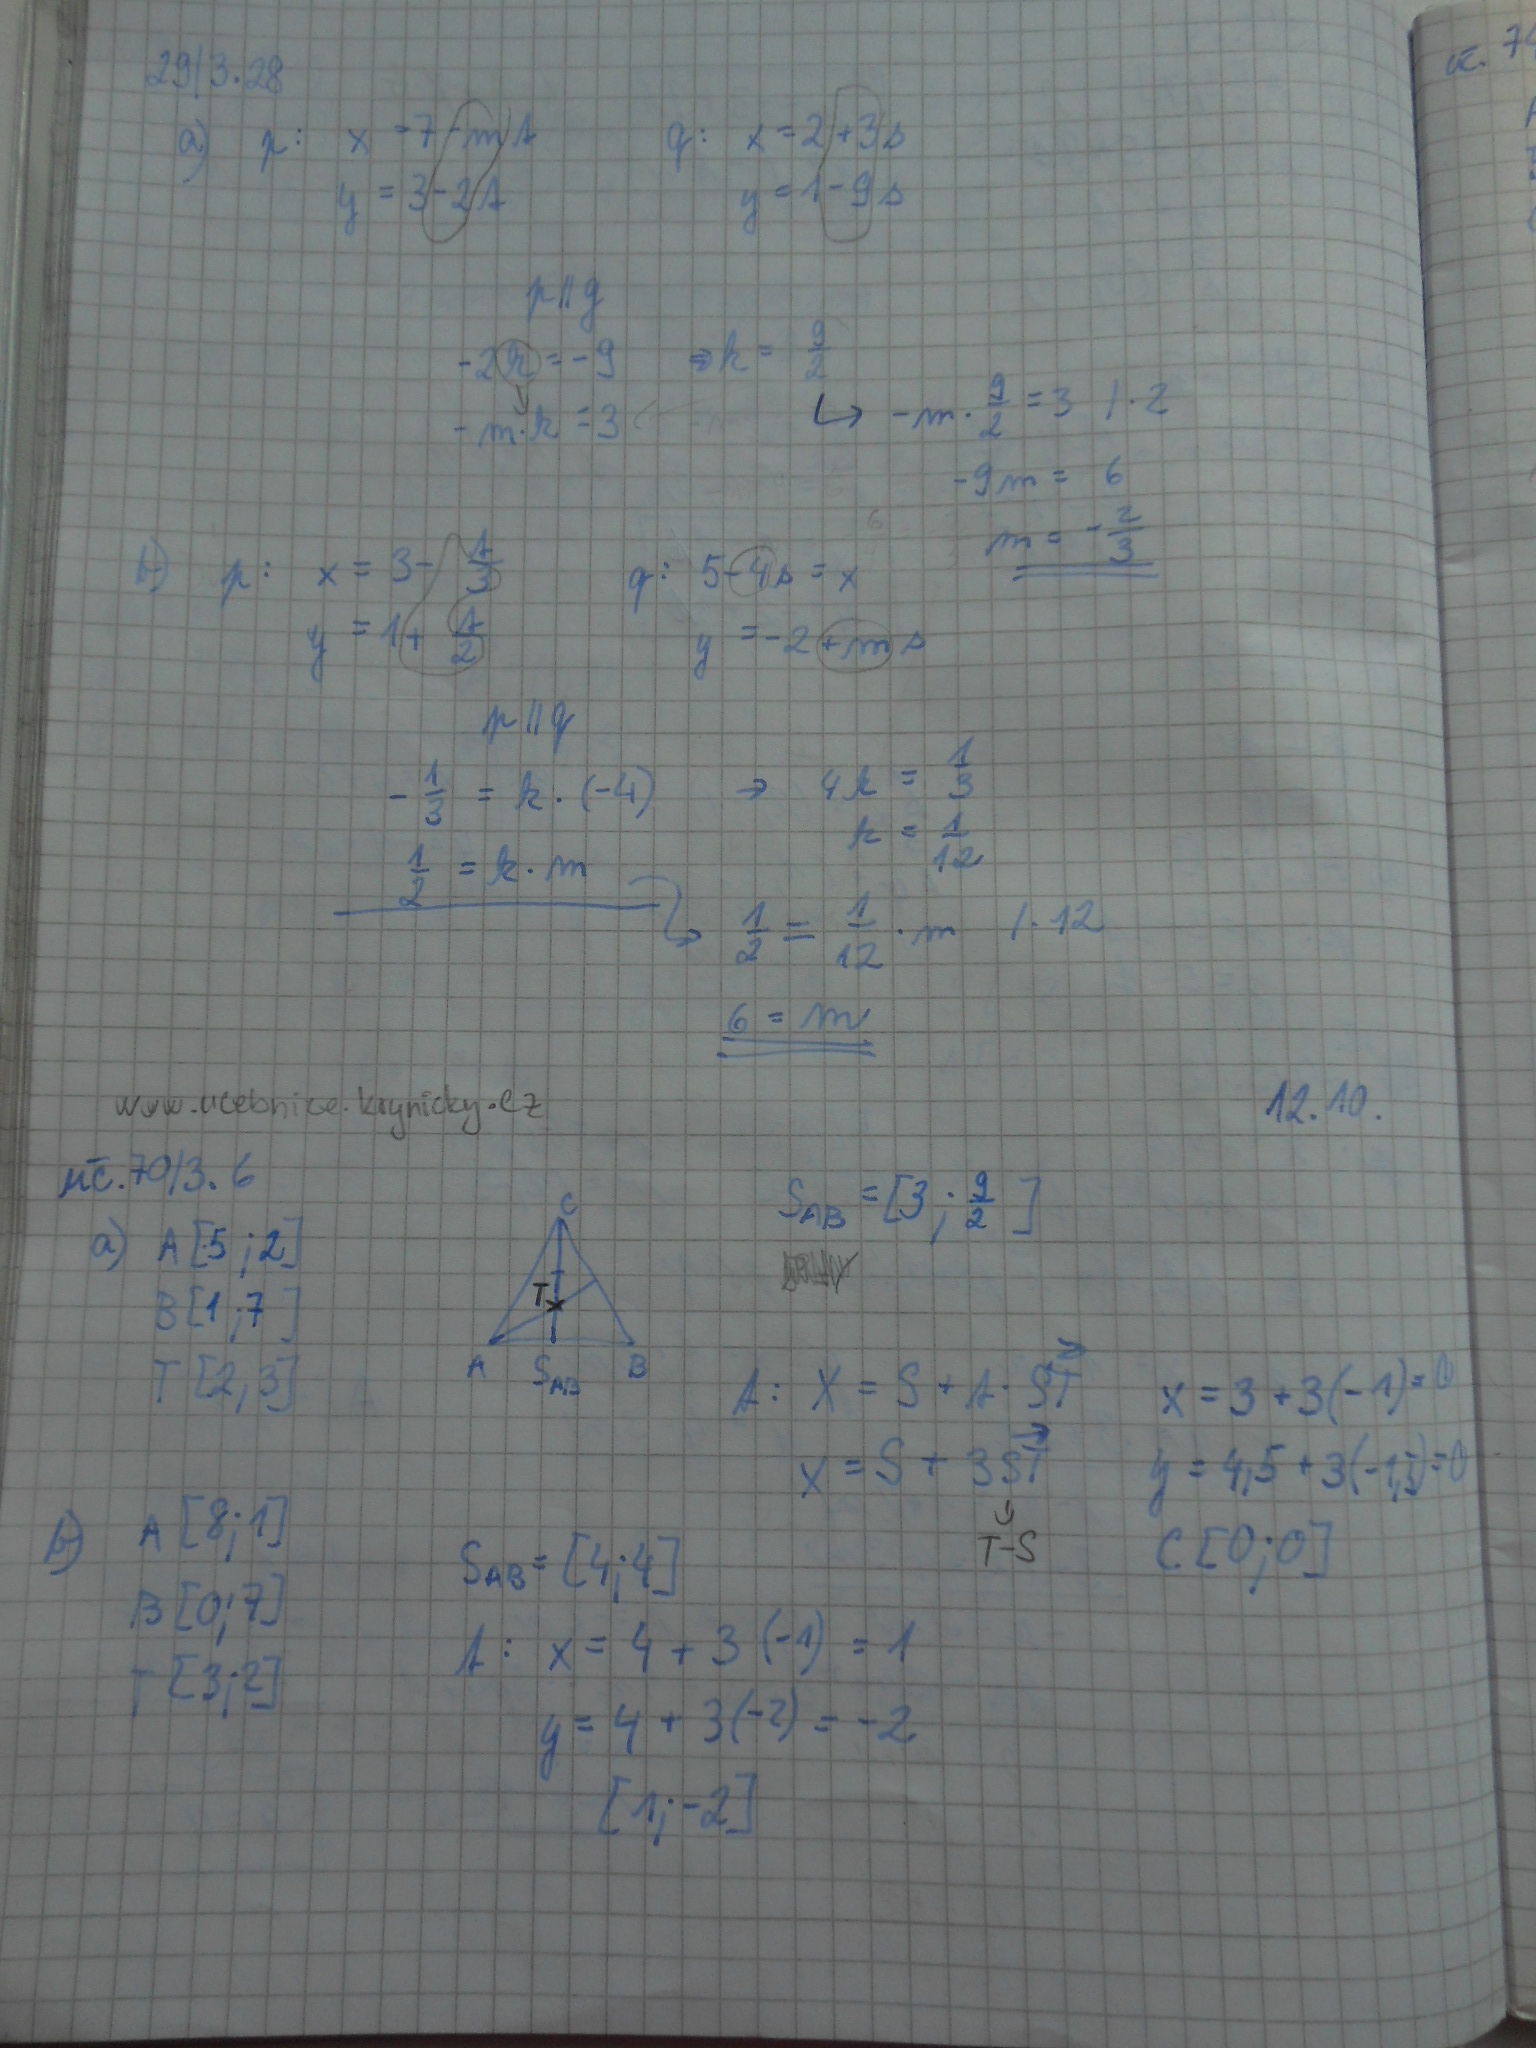 29/3.28
a) p: x = 7 - mt q: x = 2 + 3s
y = 3 - 2t y = 1 - 9s
p || q
-2k = -9 ⇒ k = 9/2
-m·k = 3 ↳ -m · 9/2 = 3 /·2
-9m = 6
m = -2/3
b) p: x = 3 - t/3 q: 5 - 4s = x
y = 1 + t/2 y = -2 + ms
p || q
-1/3 = k · (-4) → 4k = 1/3
k = 1/12
1/2 = k · m
1/2 = 1/12 · m /·12
6 = m
www.ucebnice.krynicky.cz 12.10.
uč. 70/3.6
a) A [5 ; 2]
B [1 ; 7]
T [2 ; 3]
C
T
A S_AB B
S_AB = [3 ; 9/2]
t: X = S + t · ST→
X = S + 3ST→
T-S
x = 3 + 3(-1) = 0
y = 4,5 + 3(-1,5) = 0
C [0 ; 0]
b) A [8 ; 1]
B [0 ; 7]
T [3 ; 2]
S_AB = [4 ; 4]
t: x = 4 + 3 (-1) = 1
y = 4 + 3(-2) = -2
[1 ; -2]